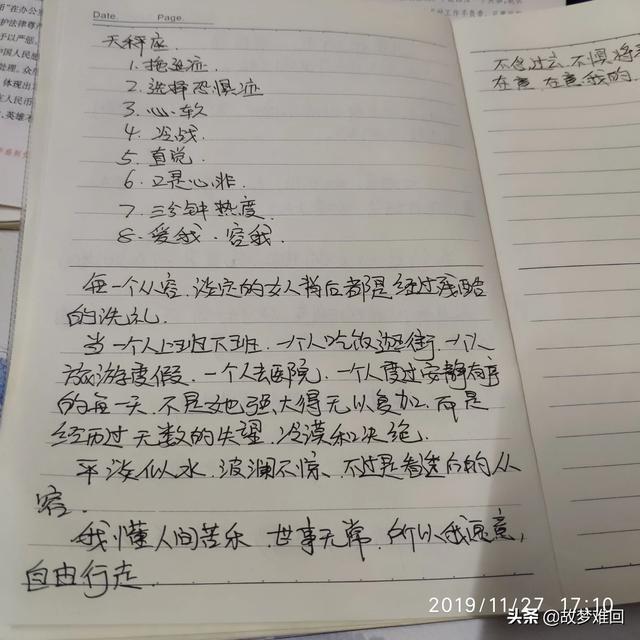 Date.
Page.
天秤座.
1. 拖延症
2. 选择恐惧症
3. 心软
4. 冷战
5. 直说.
6. 口是心非.
7. 三分钟热度.
8. 爱我.容我.
每一个从容.淡定的女人背后都是经过残酷
的洗礼.
当一个人上班下班.一个人吃饭逛街.一个人
旅游度假.一个人去医院.一个人度过安静有序
的每一天.不是她强大得无以复加.而是
经历过无数的失望.冷漠和决绝.
平淡似水.波澜不惊、不过是看透后的从
容.
我懂人间苦乐.世事无常.所以我愿意,
自由行走.
不念过去.不惧将
在意.在意我的.
2019/11/27 17:10
头条 @故梦难回